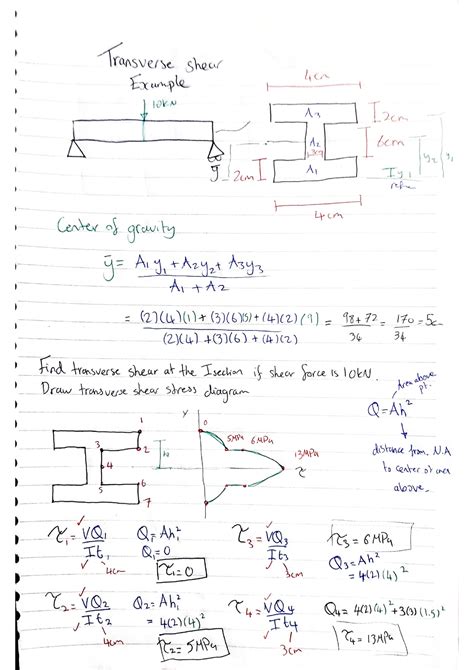 Transverse shear
Example
10kN
4cm
A3
2cm
A2
3cm
6cm
y2
y3
ȳ
2cm
A1
y1
4cm
Center of gravity
ȳ = A1y1 + A2y2 + A3y3
A1 + A2
= (2)(4)(1) + (3)(6)(5) + (4)(2)(9) = 98+72 = 170 = 5c
(2)(4) + (3)(6) + (4)(2)
36
34
Find transverse shear at the I section if shear force is 10kN.
Draw transverse shear stress diagram
Area above
pt.
Q = Ah²
distance from N.A
to center of area
above.
1
3
2
4
5
6
7
h
Y
0
5MPa
6MPa
13MPa
τ
τ1 = VQ1
It1
4cm
Q1 = Ah1²
Q1 = 0
τ1 = 0
τ3 = VQ3
It3
3cm
τ3 = 6MPa
Q3 = Ah²
= 4(2)(4)²
τ2 = VQ2
It2
4cm
Q2 = Ah1²
= 4(2)(4)²
τ2 = 5MPa
τ4 = VQ4
It4
3cm
Q4 = 4(2)(4)² + 3(3)(1.5)²
τ4 = 13MPa